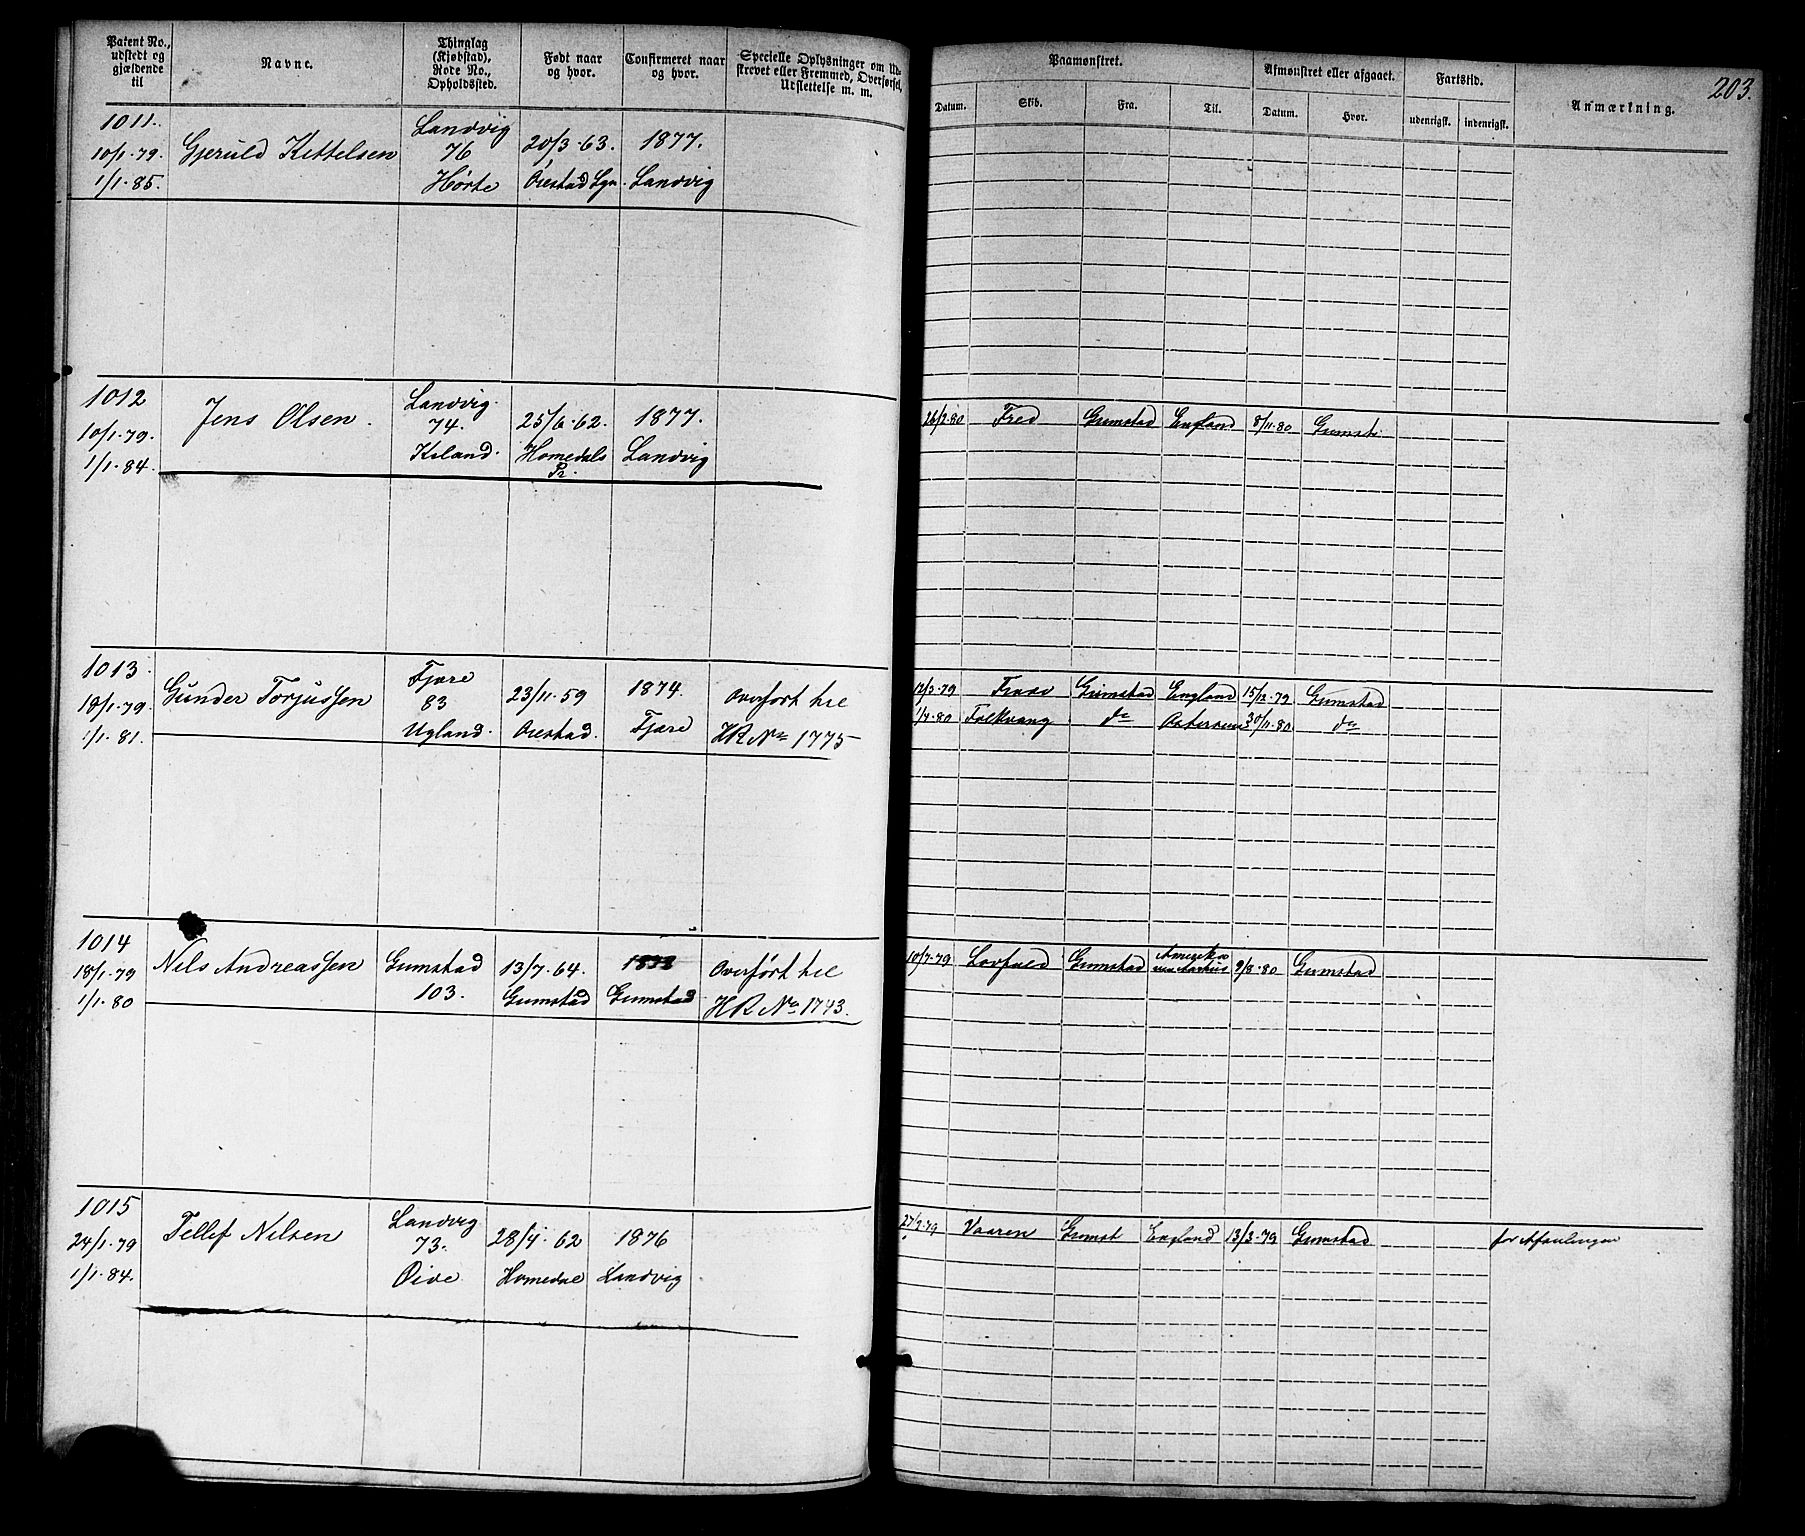 Patent No., udstedt og gjældende til
Navne.
Thinglag (Kjøbstad), Rode No., Opholdssted.
Født naar og hvor.
Confirmeret naar og hvor.
Specielle Oplysninger om Ud-
strevet eller Fremmed, Overførsel,
Udslettelse m. m.
Paamønstret.
Afmønstret eller afgaaet.
Fartstid.
Anmærkning.
203.
Datum.
Skib.
Fra.
Til.
Datum.
Hvor.
udenrigsk.
indenrigsk.
1011.
10/1.79.
1/1.85.
Gjeruld Kittelsen
Landvig
76
Hørte
20/3.63.
Øiestad Sgn.
1877.
Landvig
1012
10/1.79.
1/1.84.
Jens Olsen.
Landvig.
74.
Kiland.
25/6.62.
Homedals
Pr.
1877.
Landvig
26/2.80 Fred Grimstad England 8/11.80 Grimst.
1013.
18/1.79.
1/1.81.
Gunder Torjussen
Fjære
83
Ugland.
23/11.59
Øiestad.
1874.
Fjære
Overført til
HR No 1775
12/3.79 Grimstad England 15/12.79 Grimstad
1/4.80 Folkvang do 30/11.80 do
1014
18/1.79
1/1.80
Nils Andreassen
Grimstad
103.
13/7.64.
Grimstad
Grimstad
Overført til
HR No 1743.
10/7.79 Lovfald Grimstad Amerika 9/8.80 Grimstad
1015
24/1.79
1/1.84.
Tellef Nilsen
Landvig
73.
Øide
28/4.62
Homedal
1876
Landvig
27/2.79 Vaaren Grimst England 13/3.79 Grimstad